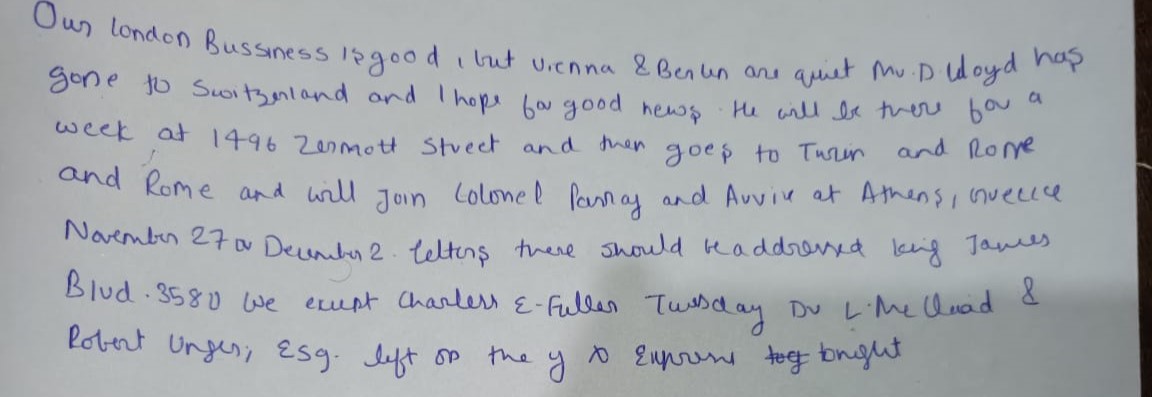 Our london Bussiness is good, but vienna & Berlin are quiet Mr. D. Lloyd has
gone to Switzerland and I hope for good news. He will be there for a
week at 1496 Zermott Street and then goes to Turin and Rome
and Rome and will Join Colonel Parray and Avvive at Athens, Greece
November 27 or December 2. letters there should be addressed King James
Blvd. 3580 We expt Charless E. Fuller Tuesday Dr L. Mc Quaid &
Robert Unger, Esq. left on the y to Express tonight